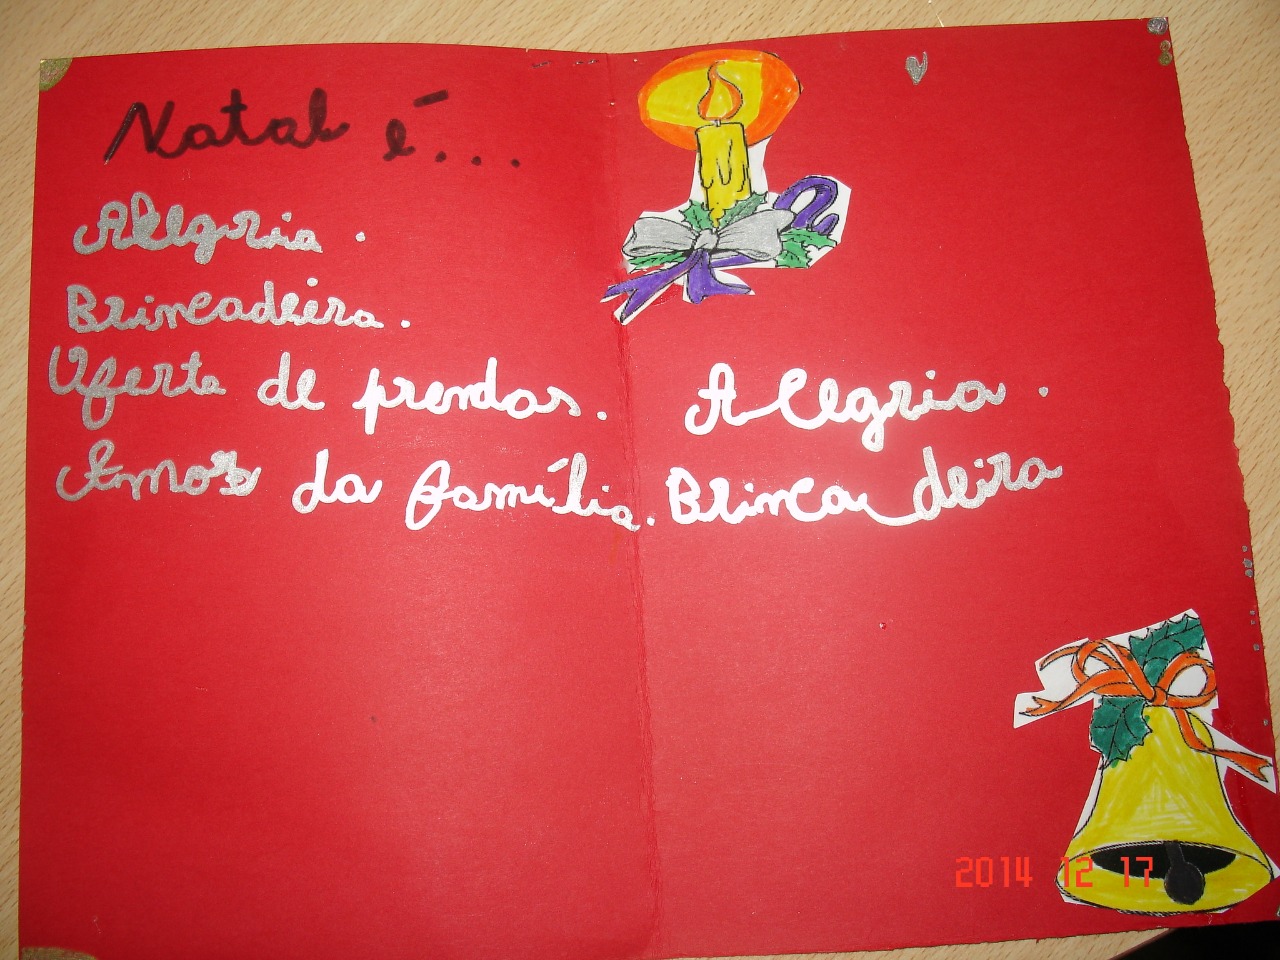 Natal é...
Alegria.
Brincadeira.
Oferta de prendas.
Amor da família.
Alegria.
Brincadeira
2014 12 17